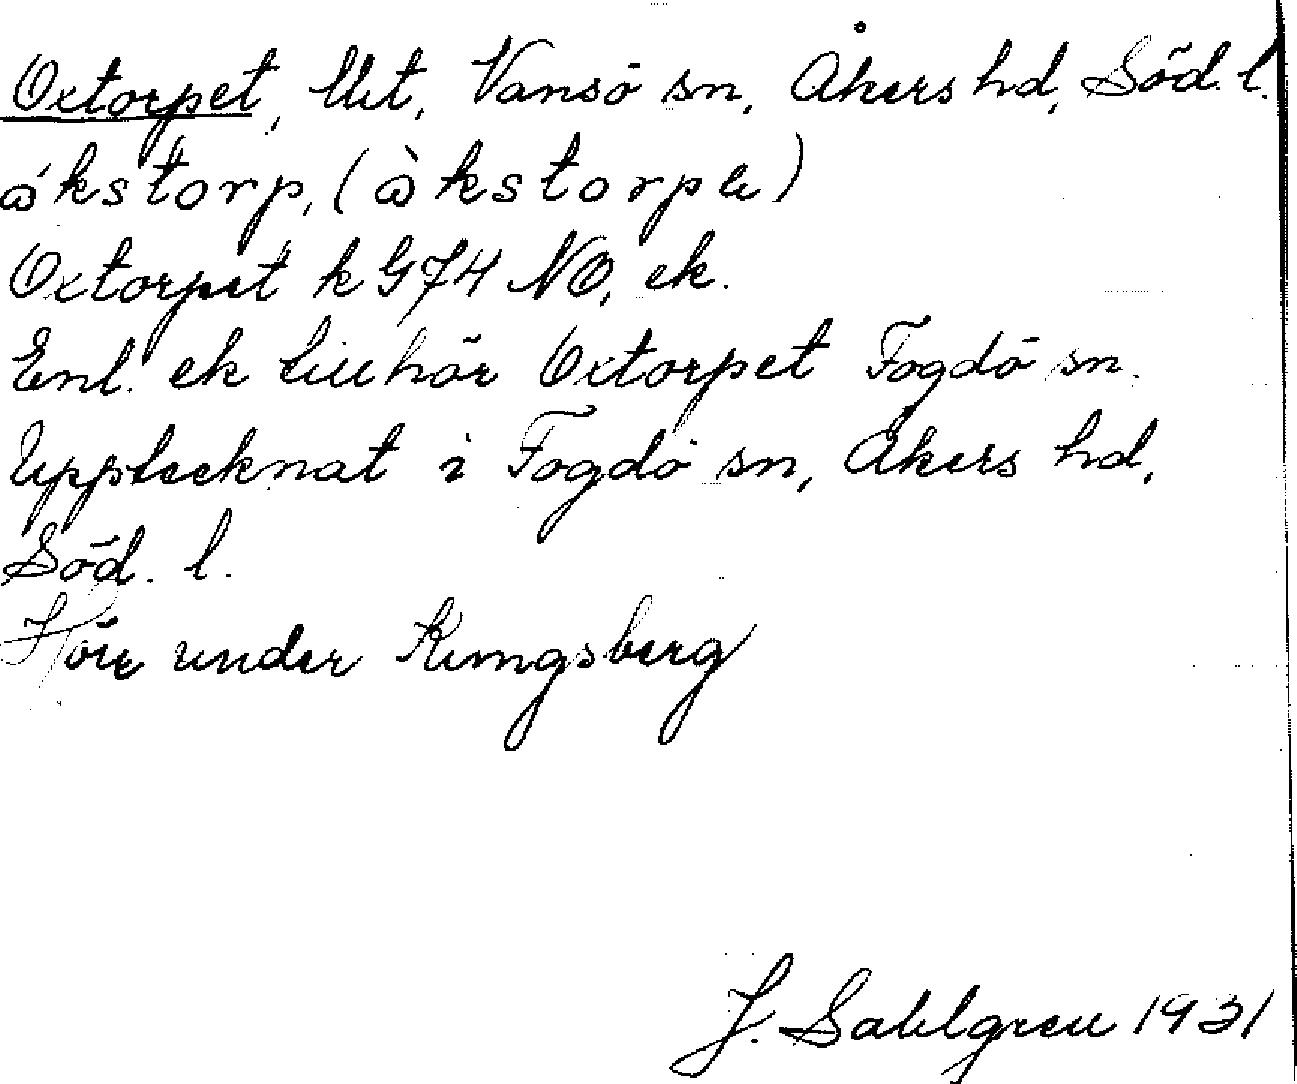 Oxtorpet, lht, Vansö sn, Åkers hd, Söd. l.
ákstorp, (àkstorpe)
Oxtorpet k G74 NO, ek.
Enl. ek tillhör Oxtorpet Fogdö sn.
Upptecknat i Fogdö sn, Åkers hd,
Söd. l.
Hör under Kungsberg
J. Sahlgren 1931